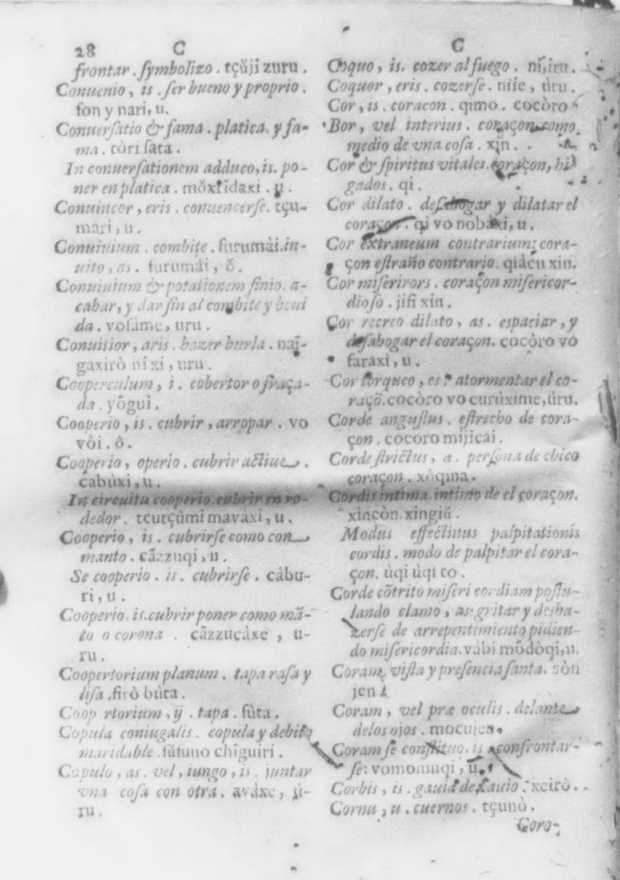 28 C
frontar. symbolizo. tçŭji zuru.
Conuenio, is. ser bueno y proprio.
fon y nari, u.
Conuersatio & fama. platica. y fa-
ma. tòri sata.
In conuersationem adduco, is. po-
ner en platica. mŏxiidaxi. u.
Conuincor, eris. conuencerse. tçu-
mari, u.
Conuiuium. combite. furumài. in-
uito, as. furumài, ŏ.
Conuiuium & potationem finio. a-
cabar, y dar fin al combite y beui
da. vosame, uru.
Conuitior, aris. hazer burla. nai-
gaxirò ni xi, uru.
Cooperculum, i. cobertor o fraça-
da. yôgui.
Cooperio, is. cubrir, arropar. vo
vôi. ô.
Cooperio, operio. cubrir actiue.
cabùxi, u.
In circuitu cooperio. cubrir en ro-
dedor. tçutçŭmi mavàxi, u.
Cooperio, is. cubrirse como con
manto. cãzzuqi, u.
Se cooperio. is. cubrirse. càbu-
ri, u.
Cooperio. is. cubrir poner como mã-
to o corona. cãzzucàxe, u-
ru.
Coopertorium planum. tapa rasa y
lisa. firò bùta.
Coop rtorium, ij. tapa. fùta.
Copula coniugalis. copula y debito
maridable. fùfuno chiguiri.
Copulo, as. vel, iungo, is. juntar
vna cosa con otra. avàxe, ù-
ru.
C
Coquo, is. cozer al fuego. nì, iru.
Coquor, eris. cozerse. niìe, ùru.
Cor, is. coracon. qimo. cocòro
Bor, vel interius. coraçon como
medio de vna cosa. xin.
Cor & spiritus vitales. coraçon, hi
gados. qi.
Cor dilato. desahogar y dilatar el
coraçon. qi vo nobàxi, u.
Cor extraneum contrarium; cora-
çon estraño contrario. qiàcu xin.
Cor miserirors. coraçon misericor-
dioso. jifi xin.
Cor recreo dilato, as. espaciar, y
desahogar el coraçon. cocòro vo
faraxi, u.
Cor torqueo, es. atormentar el co-
raçõ. cocòro vo curùxime, ùru.
Corde angustus. estrecho de cora-
çon. cocoro mijicài.
Corde strictus, a. persona de chico
coraçon. xôqina.
Cordis intima. intimo de el coraçon.
xincòn. xingiŭ.
Modus effectiuus palpitationis
cordis. modo de palpitar el cora-
çon. ùqi ùqi to.
Corde cõtrito miseri cordiam postu-
lando clamo, as. gritar y desha-
zerse de arrepentimiento pidien-
do misericordia. vàbi mŏdòqi, u.
Coram vista y presencia santa. sòn
jen.
Coram, vel præ oculis. delante
delos ojos. mocujen.
Coram se constituo. is. confrontar-
se. u.
Corbis, is. gauia de nauio. xeirò.
Cornu, u. cuernos. tçunò.
Coro-